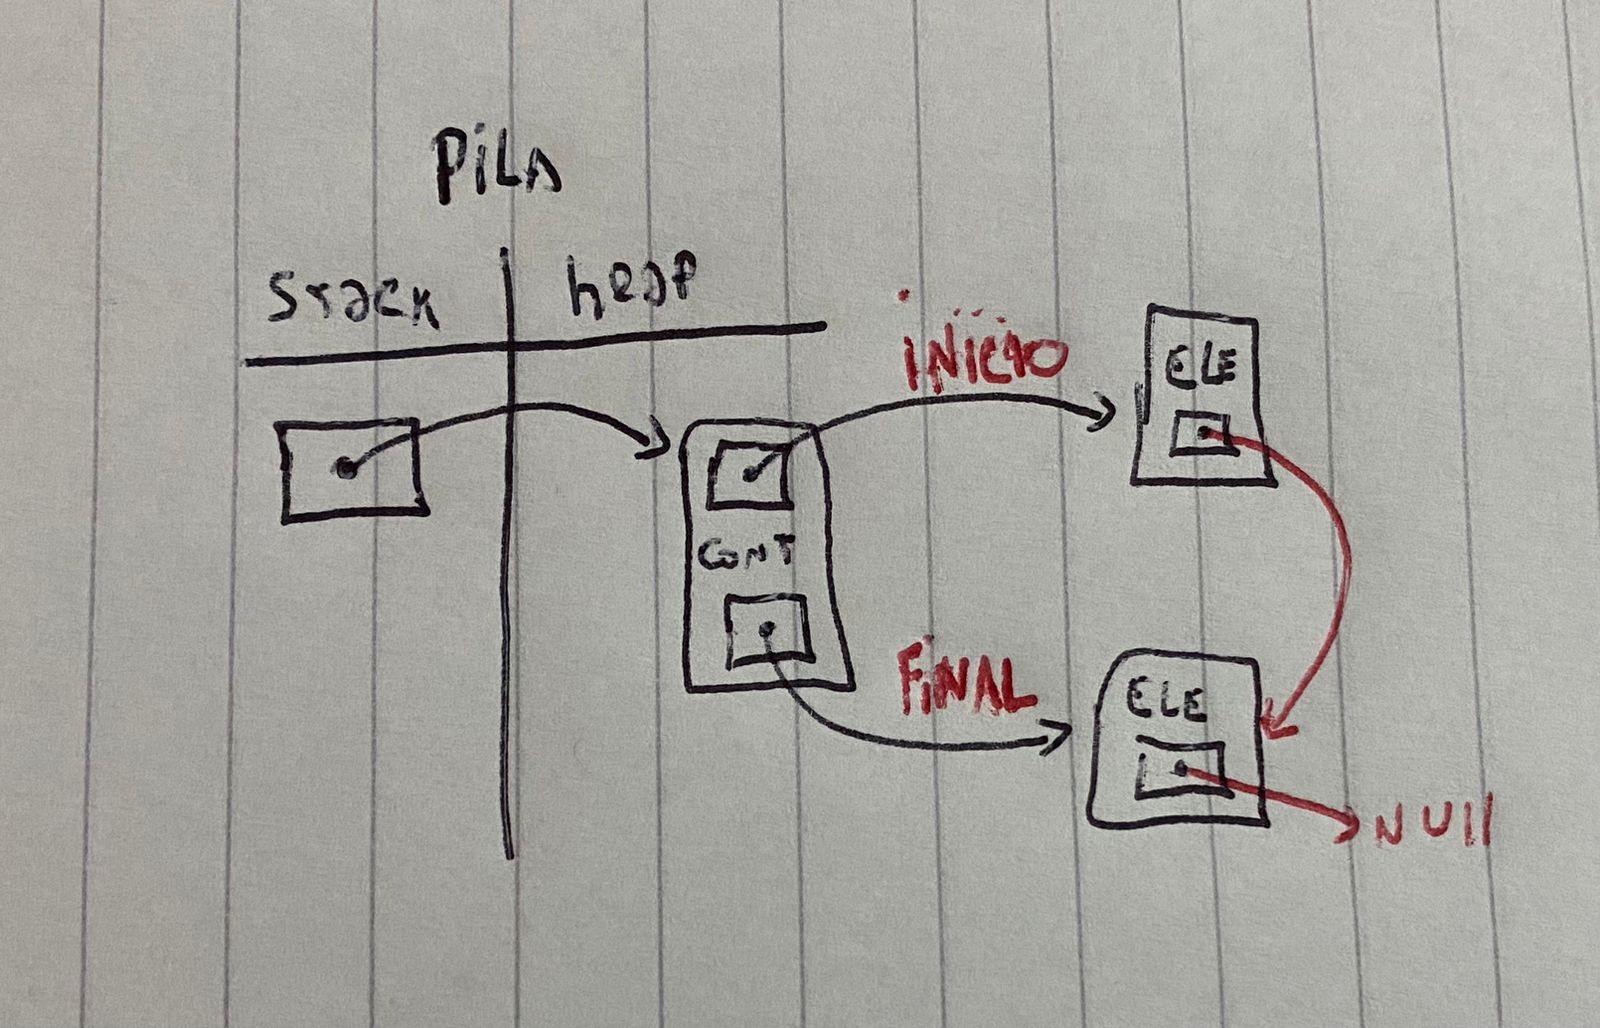 PILA
STACK heap
INICIO
ELE
CONT
FINAL
ELE
NUll